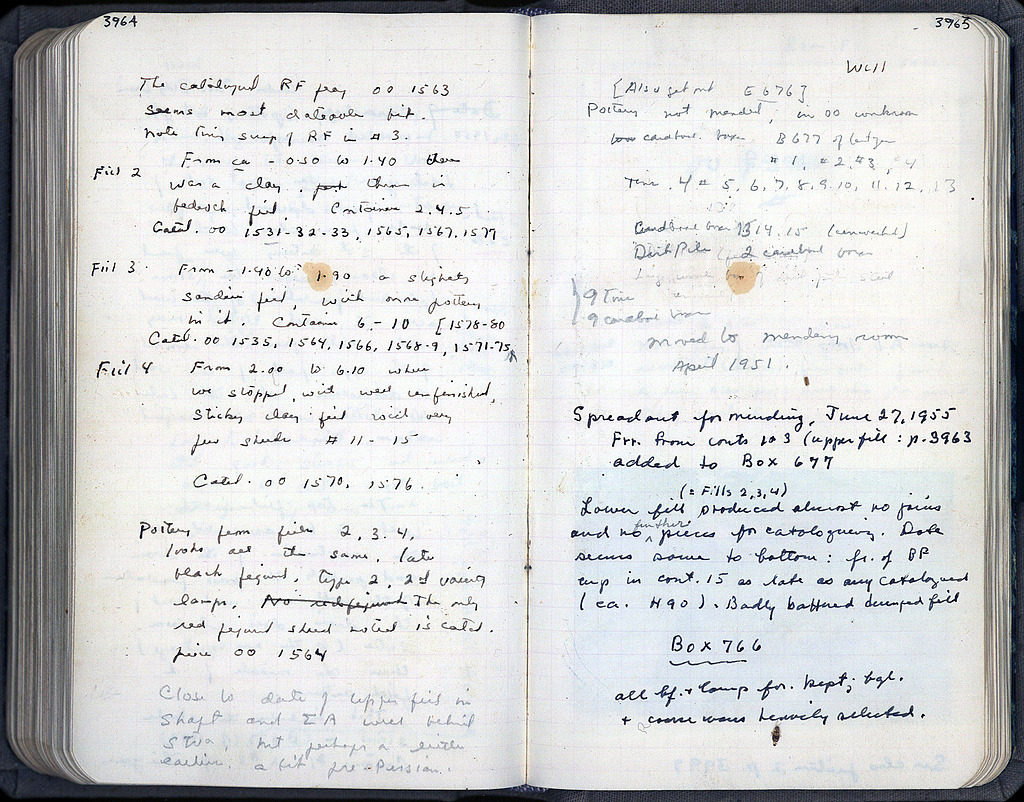 3964
The catalogued RF frag 00 1563
seems most dateable bit.
Note tiny scrap of RF in # 3.
Fill 2
From ca - 0.50 to 1.40 there
was a clay, then in
bedrock fill. Container 2.4.5
Catal. 00 1531-32-33, 1565, 1567, 1577
Fill 3
From - 1.40 to 1.90 a slightly
sandier fill, with more pottery
in it. Container 6 - 10 [1578-80
Catal. 00 1535, 1564, 1566, 1568-9, 1571-75
Fill 4
From 2.00 to 6.10 where
we stopped, with well unfinished,
sticky clay fill with very
few sherds # 11 - 15
Catal. 00 1570, 1576.
Pottery from fills 2, 3, 4,
looks all the same, late
black figured, type 2, 2nd variety
lamps. No red figured The only
red figured sherd noted is catal.
piece 00 1564
Close to date of upper fill in
Shaft and ΣA well behind
Stoa, but perhaps a little
earlier. a bit pre-Persian.
3965
Well
[Also get out E 676]
Pottery not mended, in 00 workroom
cardbord. boxes B 677
# 1, # 2, # 3, # 4
Tins. 4 # 5, 6, 7, 8, 9, 10, 11, 12, 13
Cardboard boxes 14, 15 (unwashed)
Dirt Pile 2 cardbord boxes
9 Tins
9 cardbord boxes
moved to mending room
April 1951.
Spread out for mending, June 27, 1955
Frr. from conts 1 to 3 (upper fill: p. 3963
added to Box 677
(= Fills 2, 3, 4)
Lower fill produced almost no joins
and no further pieces for cataloguing. Date
seems same to bottom: fr. of BF
cup in cont. 15 as late as any catalogued
(ca. 490). Badly battered dumped fill
Box 766
all bf. + lamp frr. kept; bgl.
+ coarse wares heavily selected.